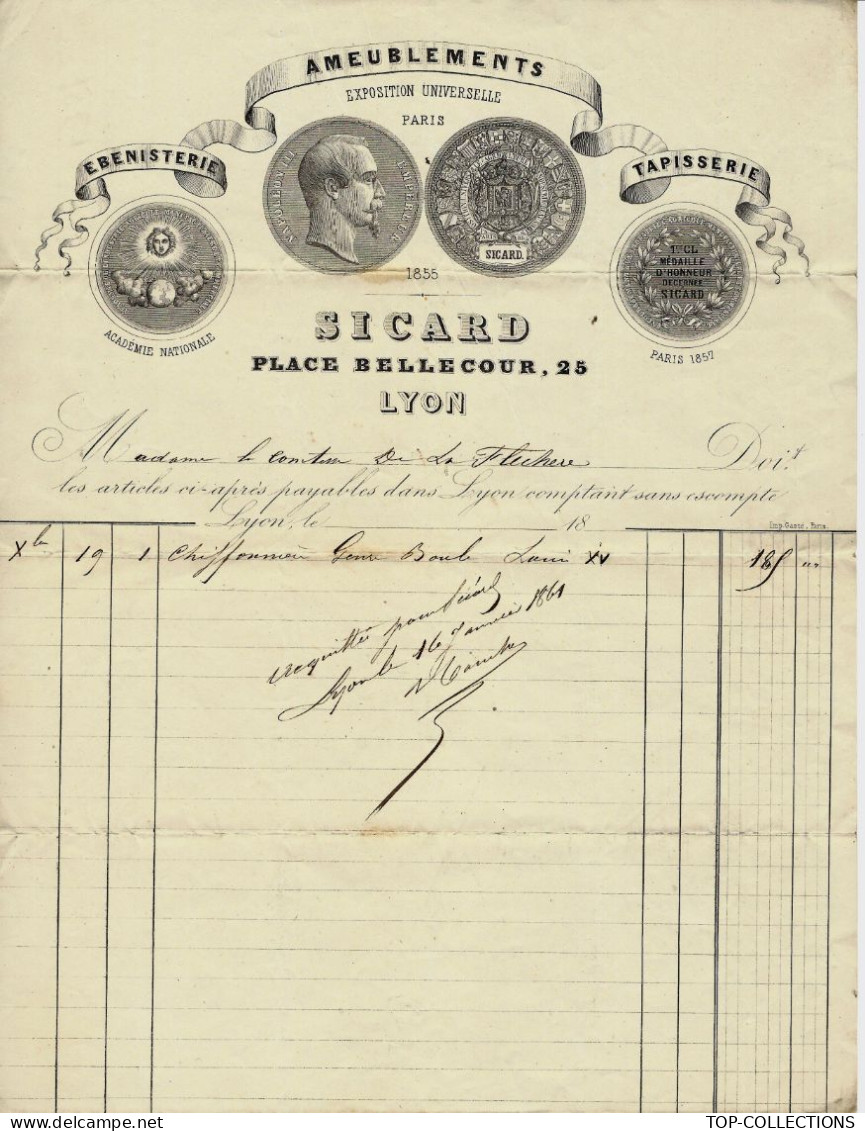 AMEUBLEMENTS
EXPOSITION UNIVERSELLE
PARIS
EBENISTERIE
TAPISSERIE
NAPOLEON III EMPEREUR
SICARD.
1re CL
MÉDAILLE
D'HONNEUR
DECERNÉE
SICARD
1855
ACADÉMIE NATIONALE
PARIS 1857
SICARD
PLACE BELLECOUR, 25
LYON
Madame la comtesse De La Flechere Doit
les articles ci-après payables dans Lyon comptant sans escompte
Lyon, le 18
Imp. Garde, Paris.
Xbre 19 1 Chiffonnière Genre Boule Louis XV 185 "
acquitté pour Sicard
Lyon le 16 Janvier 1861
TOP-COLLECTIONS